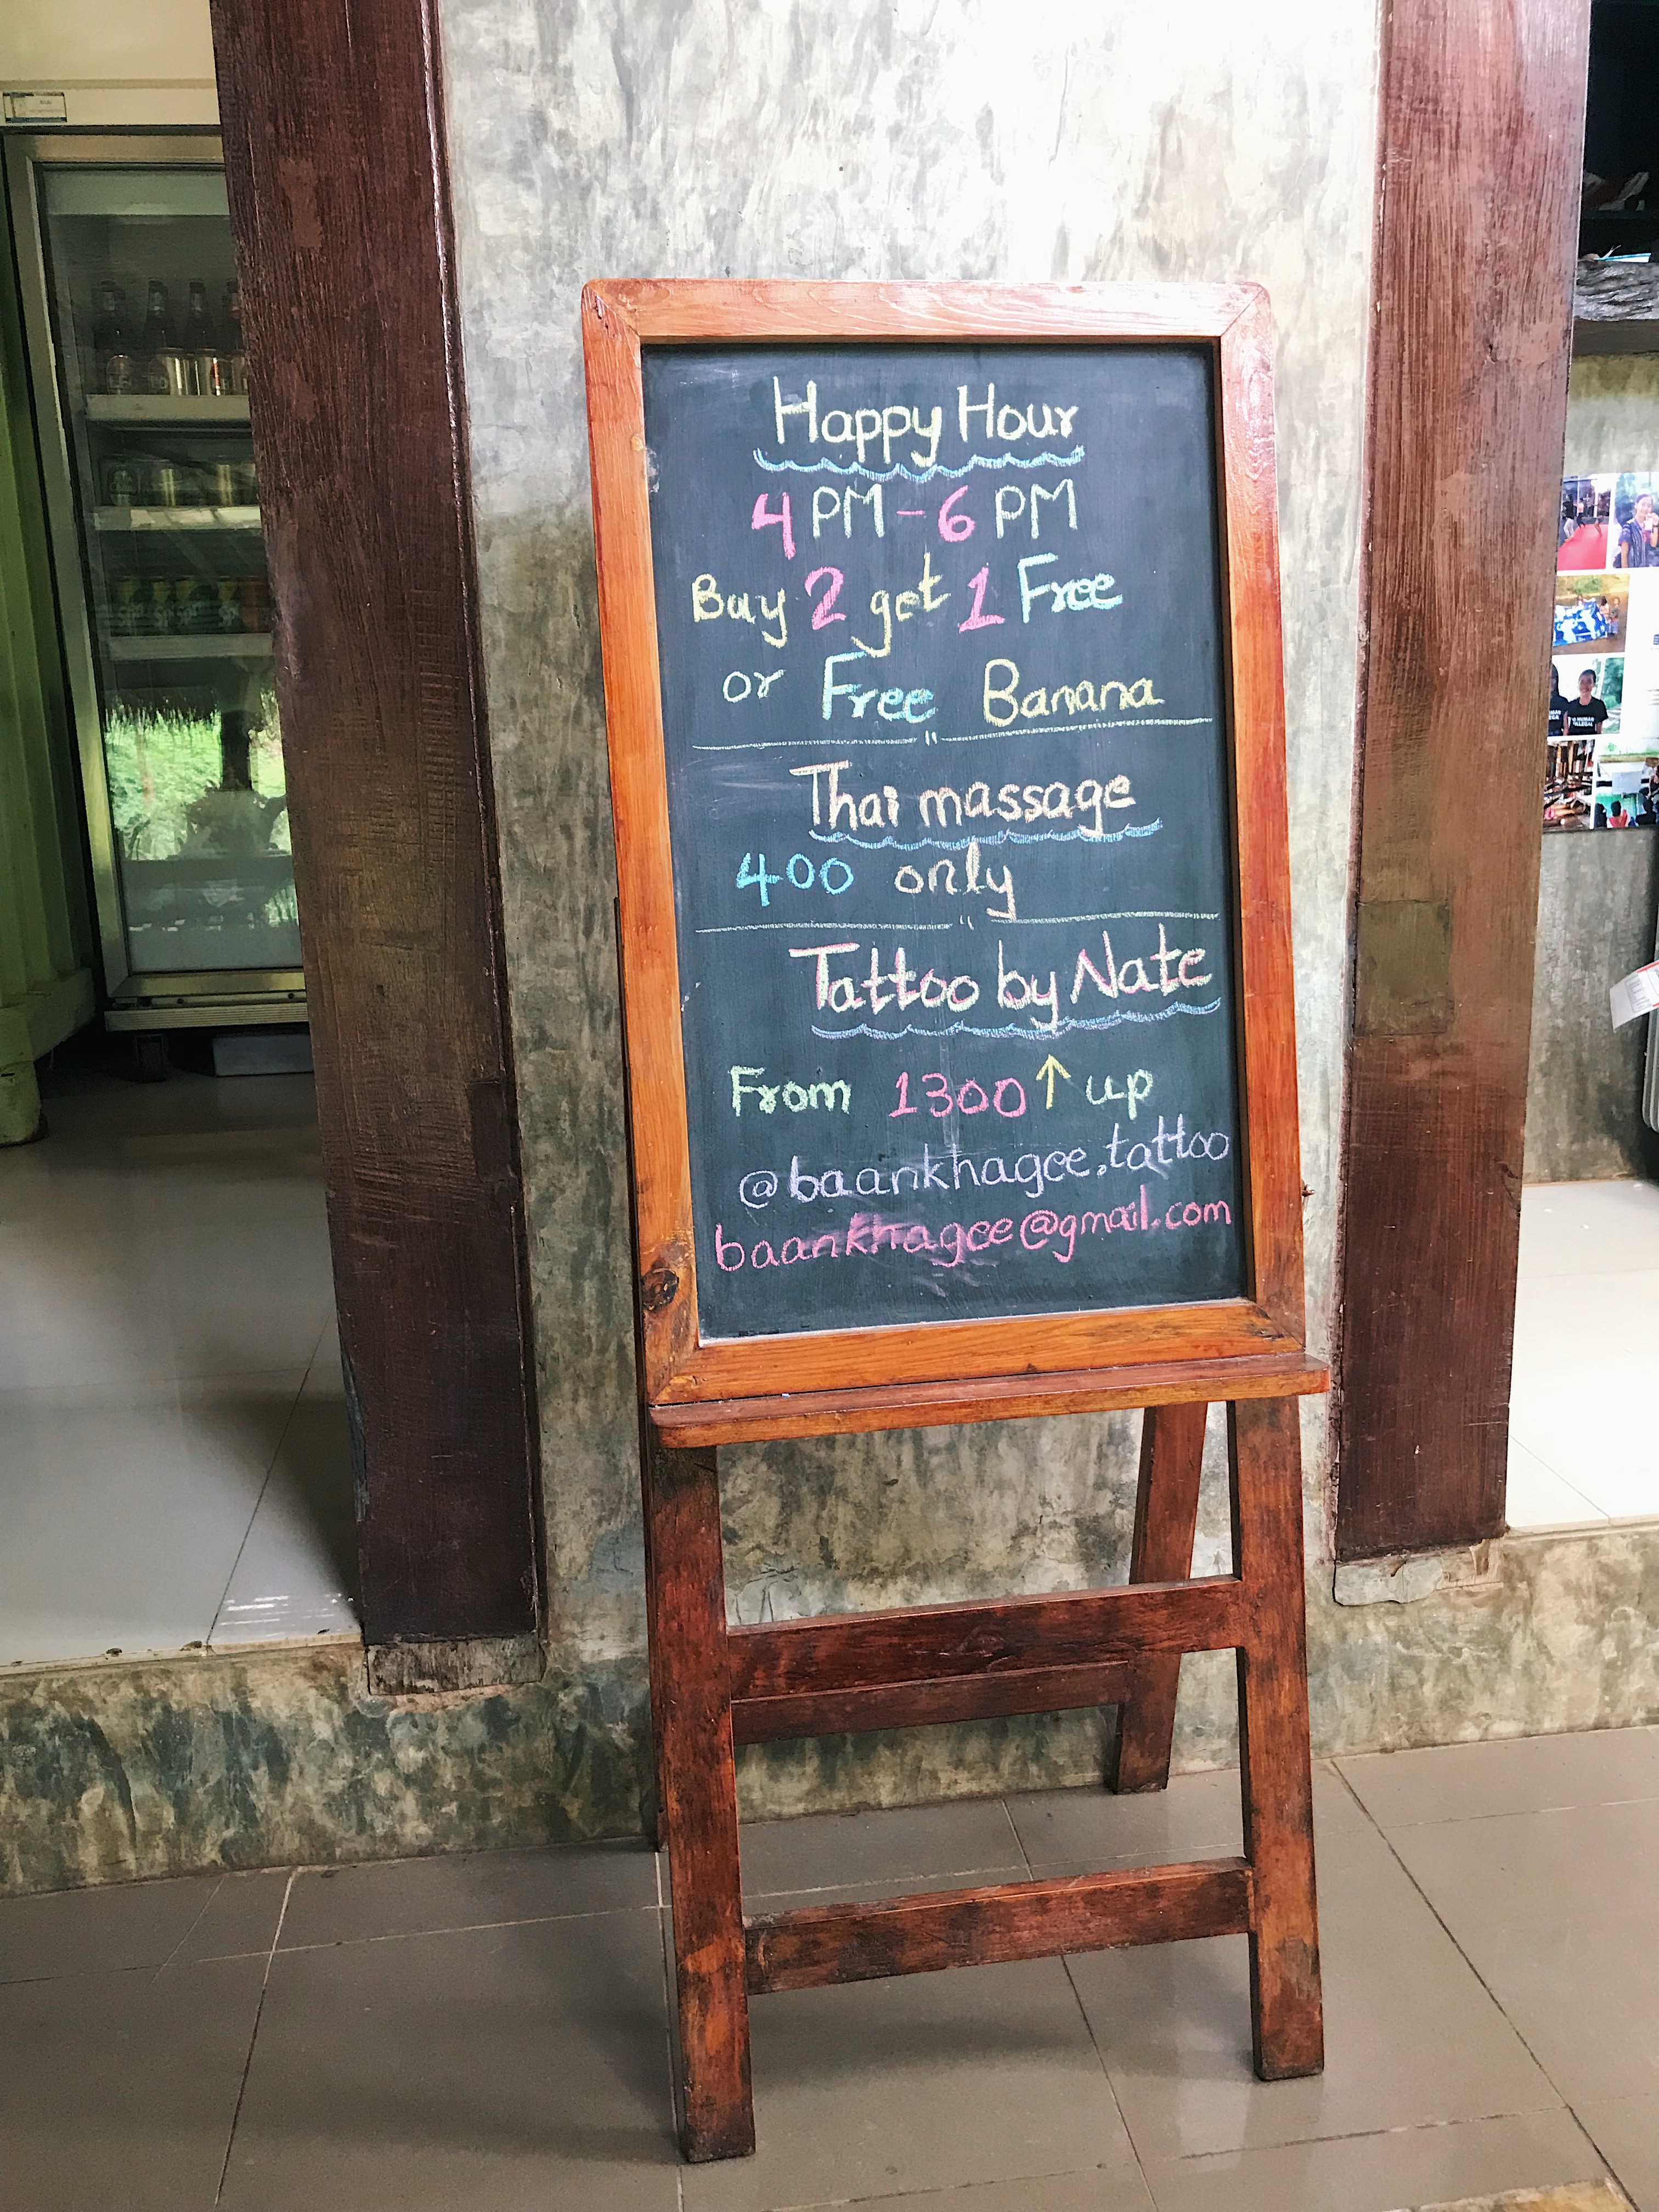 Happy Hour
4 PM - 6 PM
Buy 2 get 1 Free
or Free Banana
Thai massage
400 only
Tattoo by Nate
From 1300 ↑ up
@baankhagee.tattoo
baankhagee@gmail.com